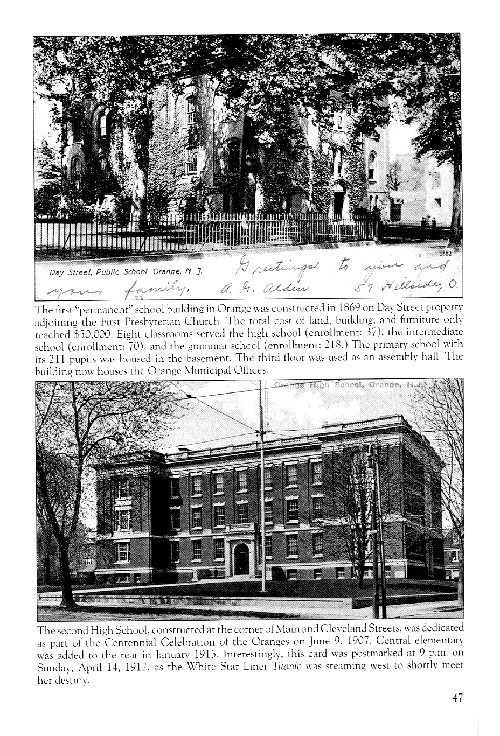 Day Street, Public School Orange, N. J.
Greetings to you and
your family. A. G.
The first "permanent" school building in Orange was constructed in 1869 on Day Street property
adjoining the First Presbyterian Church. The total cost of land, building, and furniture only
reached $50,000. Eight classrooms served the high school (enrollment: 37), the intermediate
school (enrollment: 70), and the grammar school (enrollment: 218.) The primary school with
its 211 pupils was housed in the basement. The third floor was used as an assembly hall. The
building now houses the Orange Municipal Offices.
Orange High School, Orange, N.J.
The second High School, constructed at the corner of Main and Cleveland Streets, was dedicated
as part of the Centennial Celebration of the Oranges on June 9, 1907. Central elementary
was added to the rear in January 1915. Interestingly, this card was postmarked at 9 p.m. on
Sunday, April 14, 1912, as the White Star Liner Titanic was steaming west to shortly meet
her destiny.
47